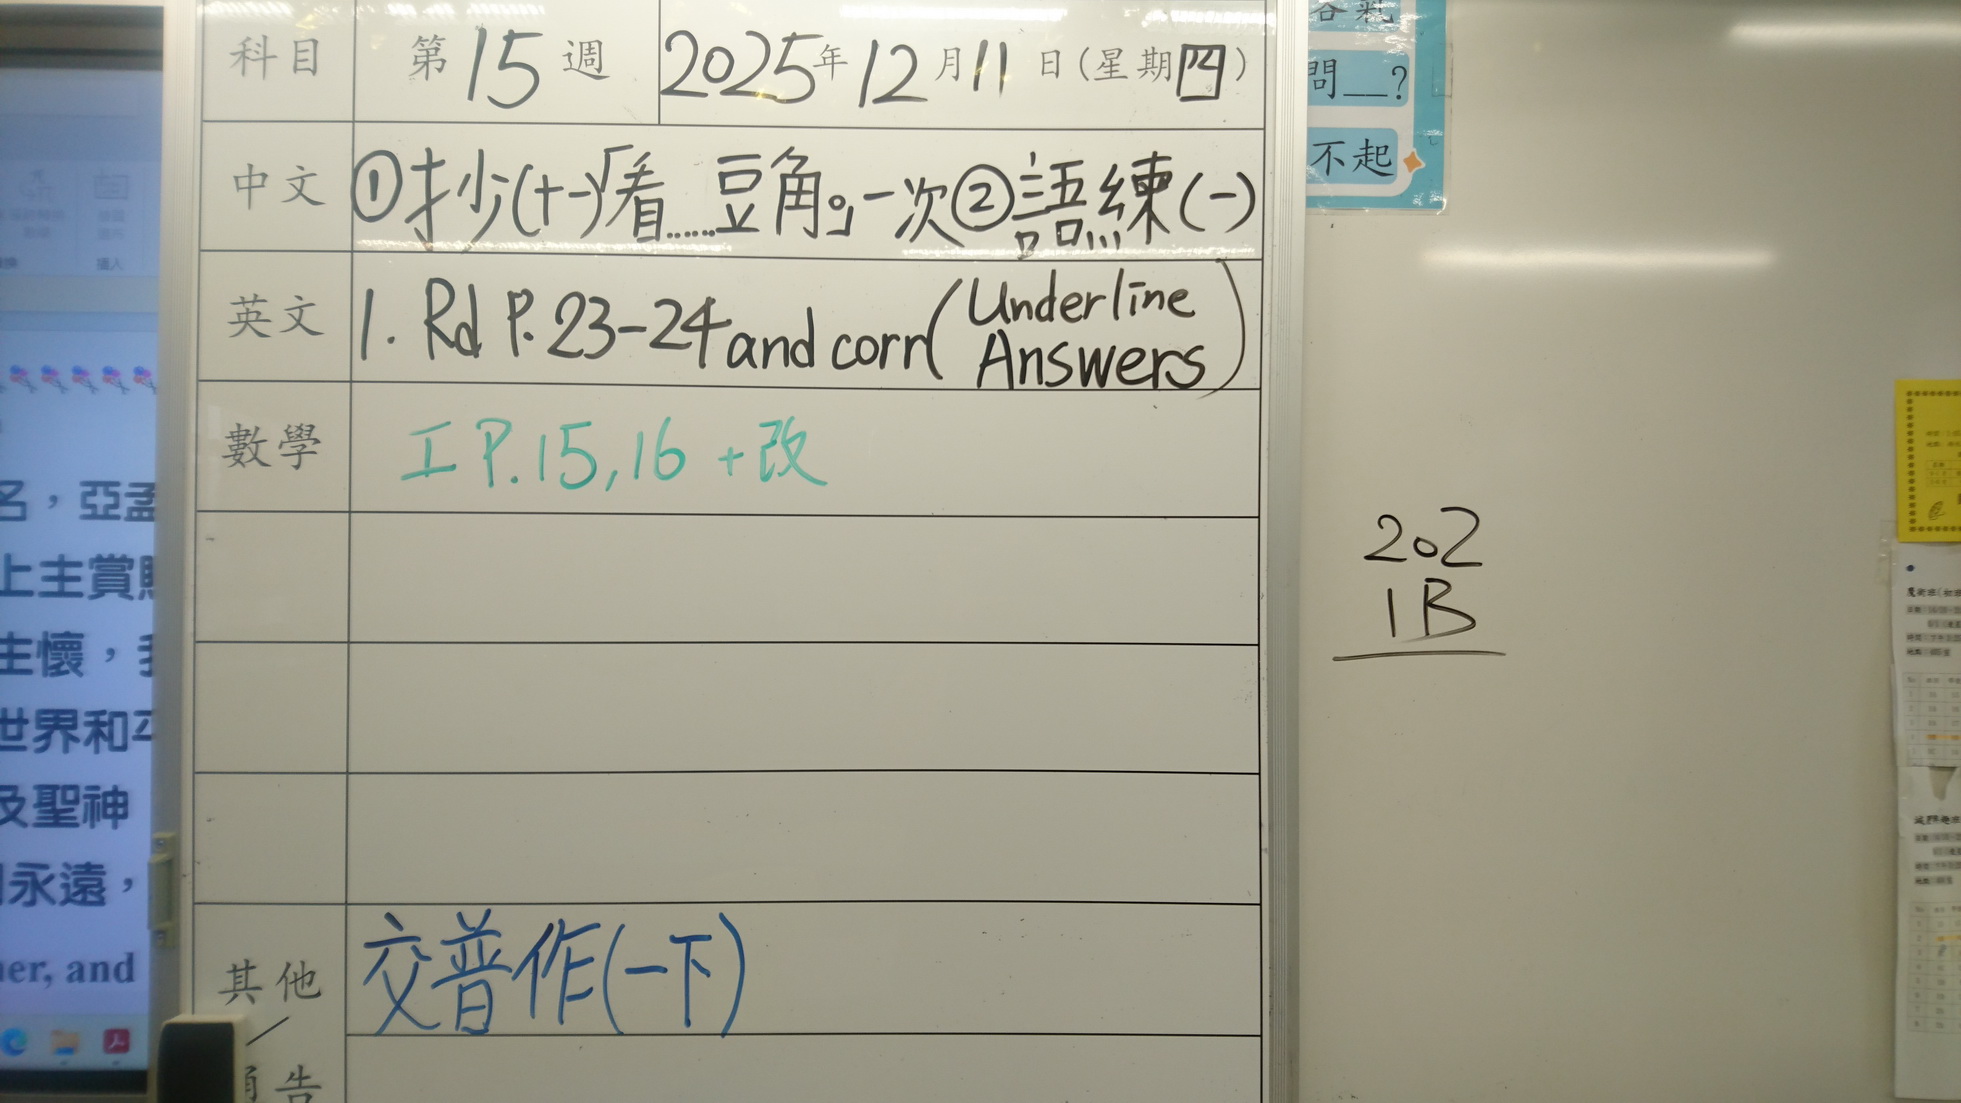 科目 第15週 2025年12月11日(星期四)
中文 ①抄(十一)「看……豆角。」一次②語練(一)
英文 1. Rd P. 23-24 and corr(Underline Answers)
數學 工 P.15,16 +改
其他
／
告
交普作(一下)
問__?
不起
202
1B
名，亞孟
上主賞
主懷，
世界和平
及聖神
永遠，
her, and